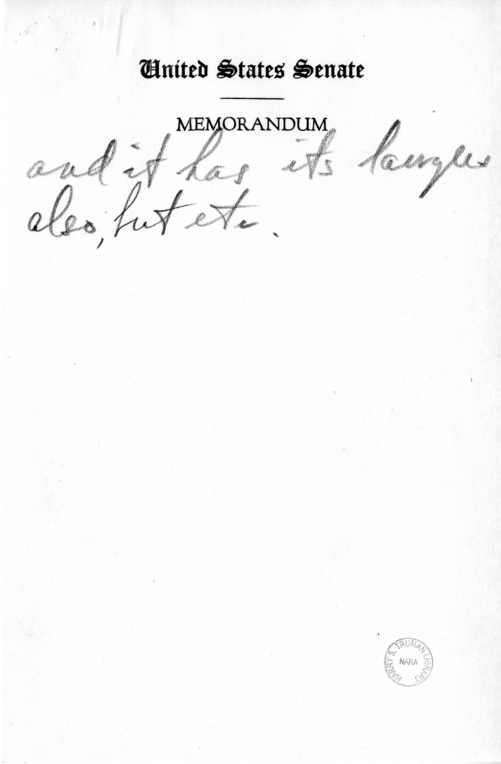 United States Senate
MEMORANDUM
and it has its laughs
also, but etc.
HARRY S. TRUMAN LIBRARY
NARA